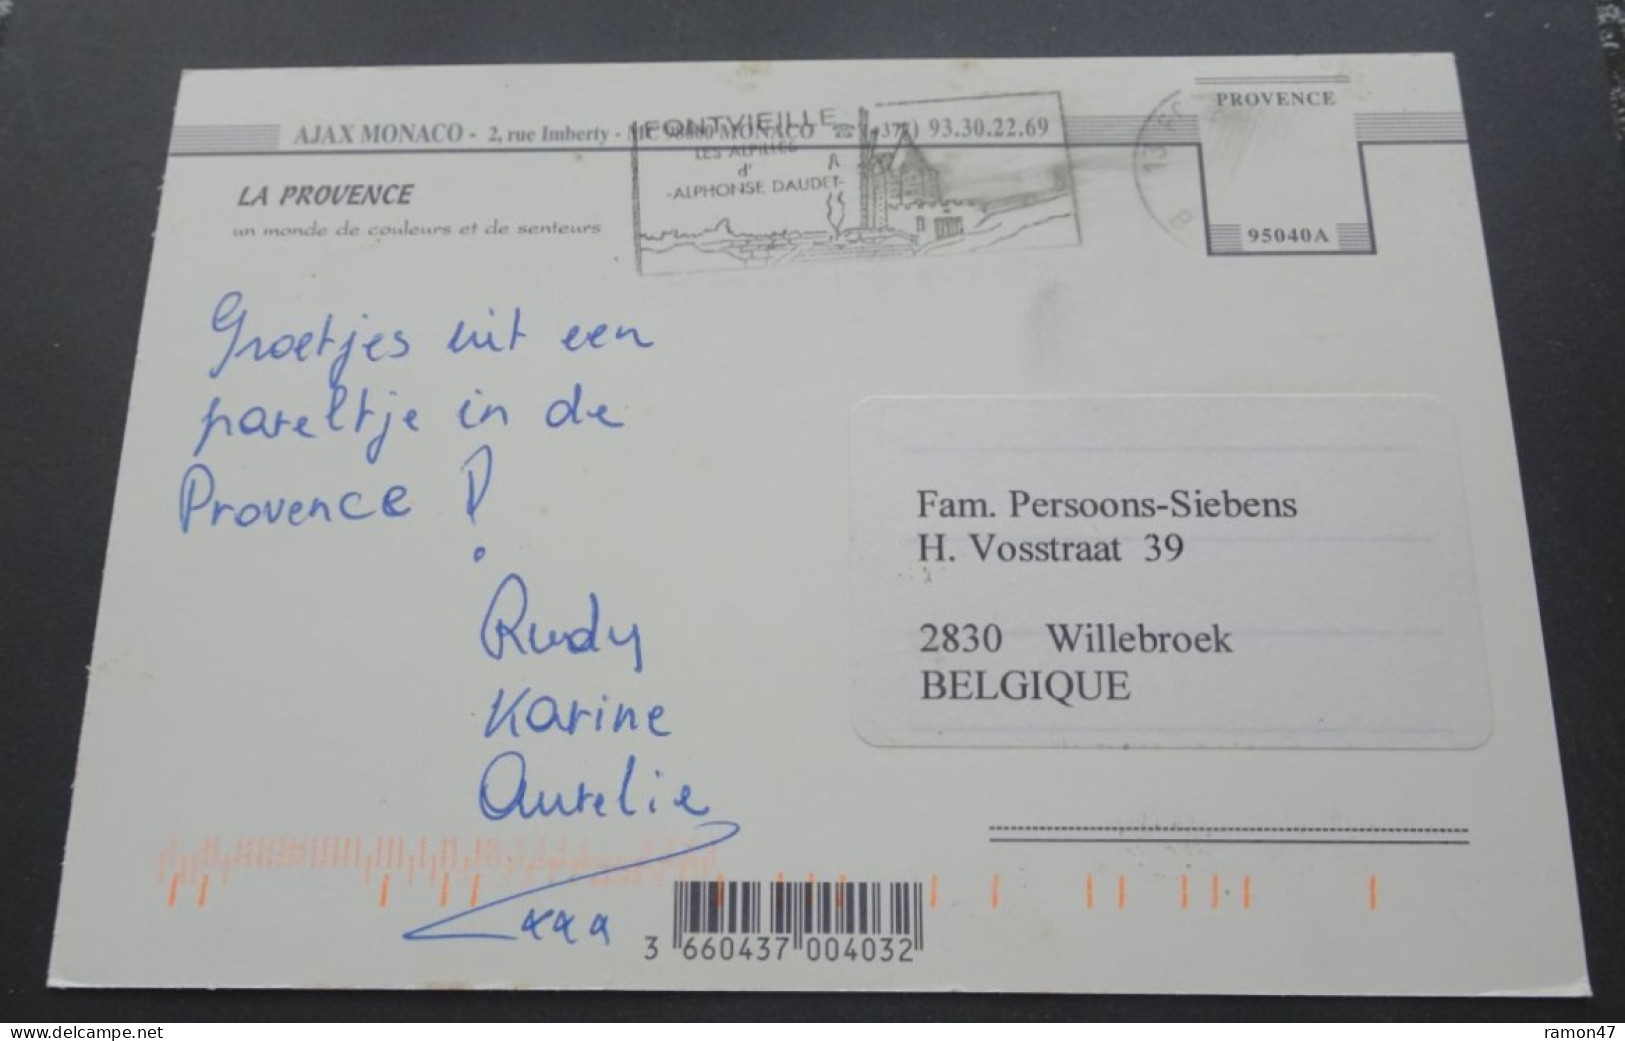 PROVENCE
AJAX MONACO - 2, rue Imberty - MC 98000 MONACO ☎ (+377) 93.30.22.69
FONTVIEILLE
LES ALPILLES
d'
-ALPHONSE DAUDET-
13
95040A
LA PROVENCE
un monde de couleurs et de senteurs
Groetjes uit een
pareltje in de
Provence !
Rudy
Karine
Aurelie
xxx
Fam. Persoons-Siebens
H. Vosstraat 39
2830 Willebroek
BELGIQUE
3 660437 004032
www.delcampe.net
ramon47